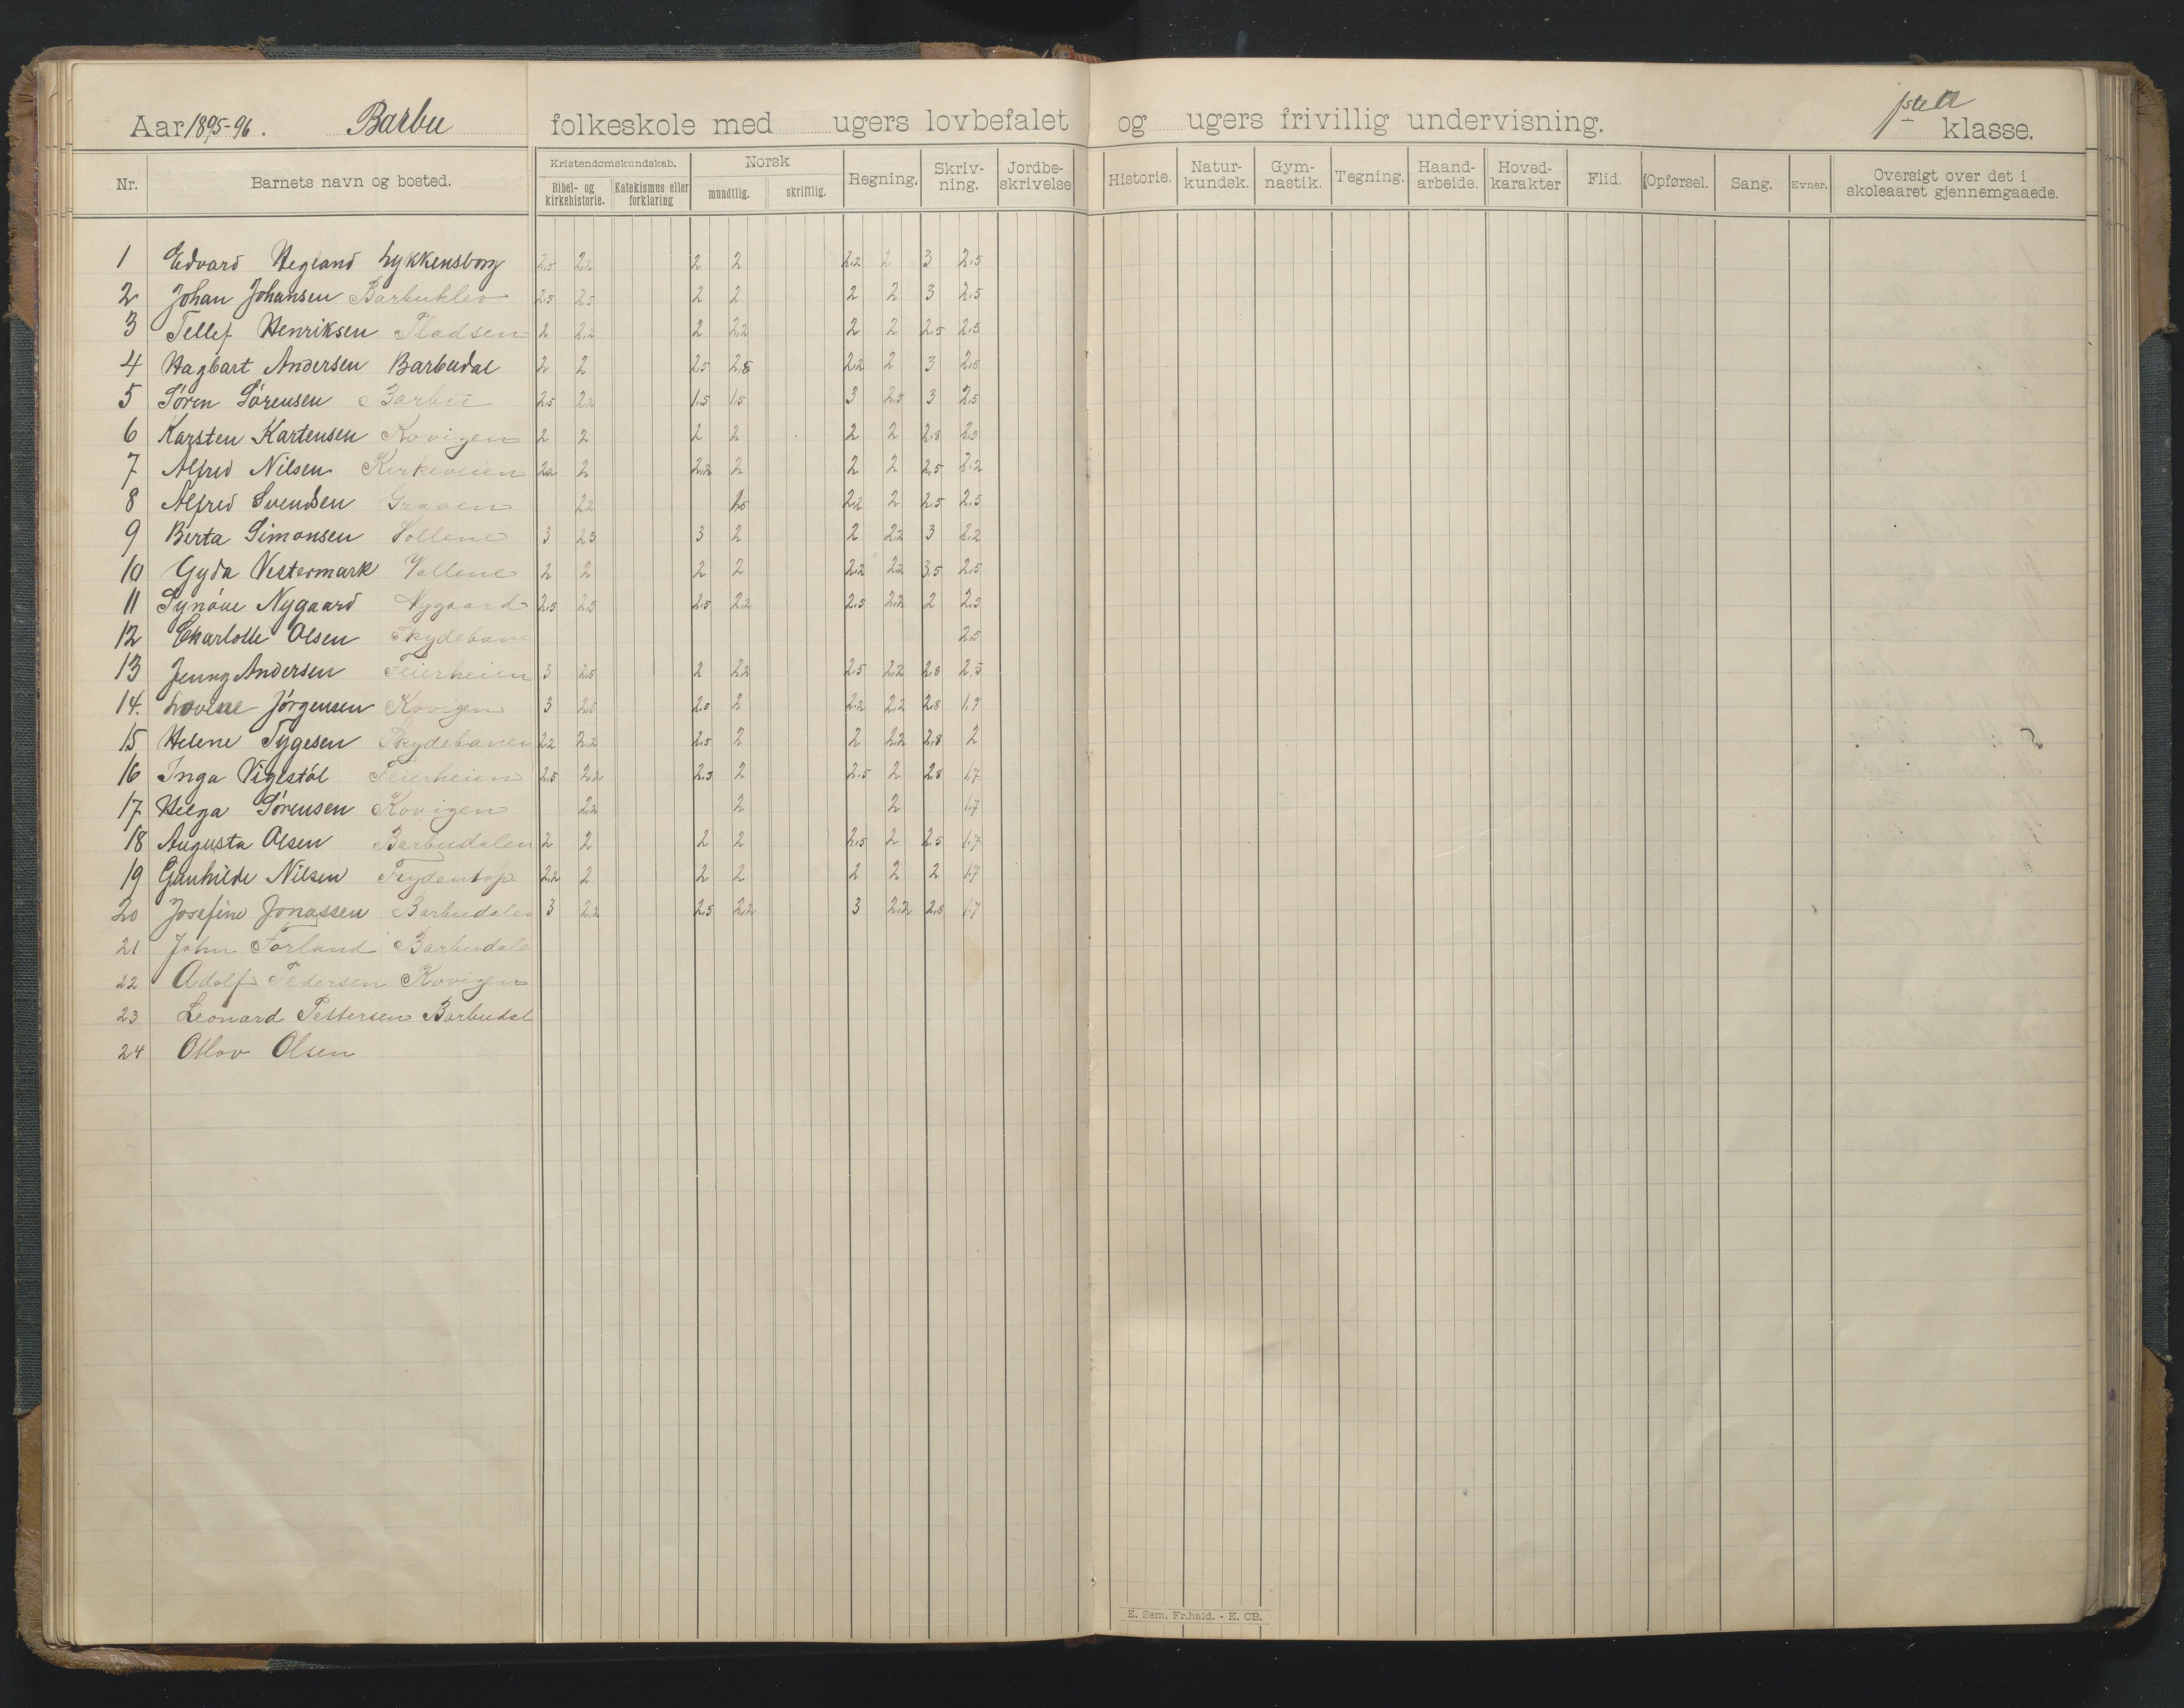 Aar 1895-96. Barbu folkeskole med ugers lovbefalet og ugers frivillig undervisning. 1ste a klasse.
Nr. Barnets navn og bosted. Kristendomskundskab. Bibel- og kirkehistorie. Katekismus eller forklaring Norsk mundtlig. skriftlig. Regning. Skriv-ning. Jordbe-skrivelse Historie. Natur-kundsk. Gym-nastik. Tegning. Haand-arbeide. Hoved-karakter Flid. Opførsel. Sang. Evner. Oversigt over det i skoleaaret gjennemgaaede.
1 Edvard Hegland Lykkensborg 2.5 2.2 2 2 2.2 2 3 2.5
2 Johan Johansen Barbuklev 2.5 2.5 2 2 2 2 3 2.5
3 Tellef Henriksen Pladsen 2 2.2 2 2.2 2 2 2.5 2.5
4 Hagbart Andersen Barbudal 2 2 2.5 2.5 2.2 2 3 2.5
5 Søren Sørensen Barbu 2.5 2.2 1.5 1.5 3 2.5 3 2.5
6 Karsten Kartensen Kovigen 2 2 2 2 2 2 2.8 2.5
7 Alfred Nilsen Kirkeveien 2.2 2 2.2 2 2 2 2.5 2.2
8 Alfred Svendsen 2.2 2.2 2 2.5 2.5
9 Berta Simonsen 3 2.5 3 2 2 2.2 3 2.2
10 Gyda Vestermark Vollene 2 2 2 2 2.2 2.2 3.5 2.5
11 Synøve Nygaard Nygaard 2.5 2.5 2.5 2.2 2.5 2.2 2 2.5
12 Charlotte Olsen Skydebane 2.5
13 Jenny Andersen Feierheien 3 2.5 2 2.2 2.5 2.2 2.8 2.5
14. Lovise Jørgensen Kovigen 3 2.5 2.5 2 2.2 2.2 2.8 1.7
15 Helene Tygesen Skydebanen 2.2 2.2 2.5 2 2 2.2 2.8 2
16 Inga Viglstøl Feierheien 2.5 2.2 2.5 2 2.5 2 2.8 1.7
17 Helga Sørensen Kovigen 2.2 2 2 1.7
18 Augusta Olsen Barbudalen 2 2 2 2 2.5 2 2.5 1.7
19 Gunhilde Nilsen Frydentop 2.2 2 2 2 2 2 2 1.7
20 Josefine Jonassen Barbudalen 3 2.2 2.5 2.2 3 2.2 2.8 1.7
21 John Forland Barbudale
22 Adolf Pedersen Kovigen
23 Leonard Pettersen Barbudal
24 Olsen
E. Sem, Fr.hald. - E. CB.